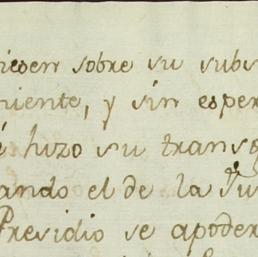 sobre su subs
niente, y sin esper
hizo su trans
ando el de la Ju
Presidio se apoder